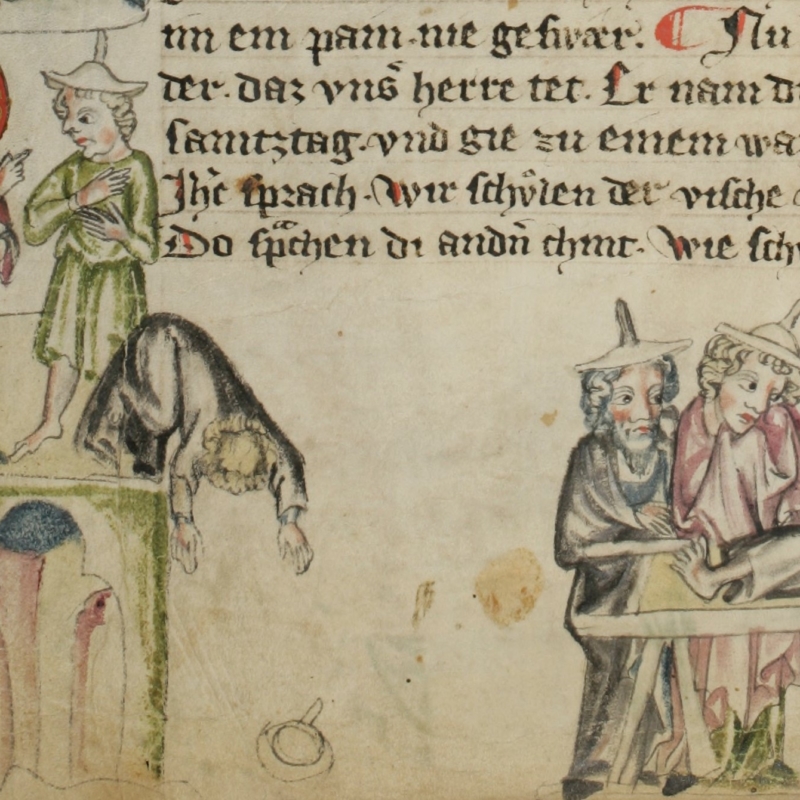 im ein pain nie geswær. Nu
der. daz vnſ herre tet. Er nam di
samtztag. vnd gie zu einem wa
Jhc sprach. Wir schvͤlen der vische
Do spͣchen di andn̄ chint. Wie sch